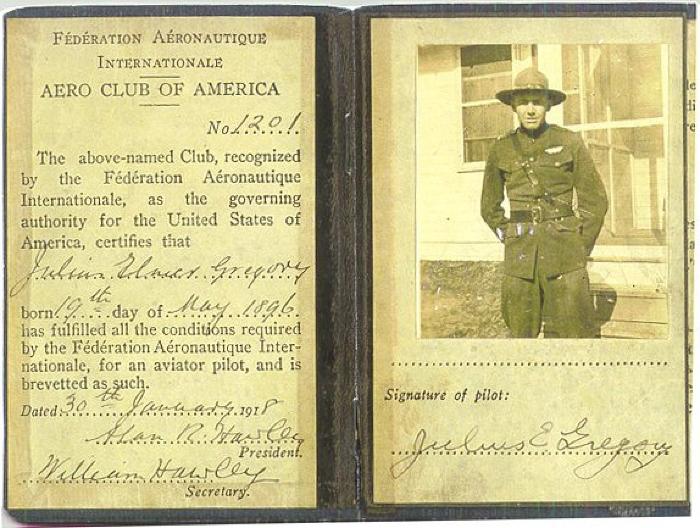 FÉDÉRATION AÉRONAUTIQUE
INTERNATIONALE
AERO CLUB OF AMERICA
No. 1201
The above-named Club, recognized
by the Fédération Aéronautique
Internationale, as the governing
authority for the United States of
America, certifies that
Julius Elmer Gregory
born 19th day of May 1896
has fulfilled all the conditions required
by the Fédération Aéronautique Inter-
nationale, for an aviator pilot, and is
brevetted as such.
Dated 30th January 1918
Alan R. Hawley
President.
William Hawley
Secretary.
Signature of pilot:
Julius E Gregory